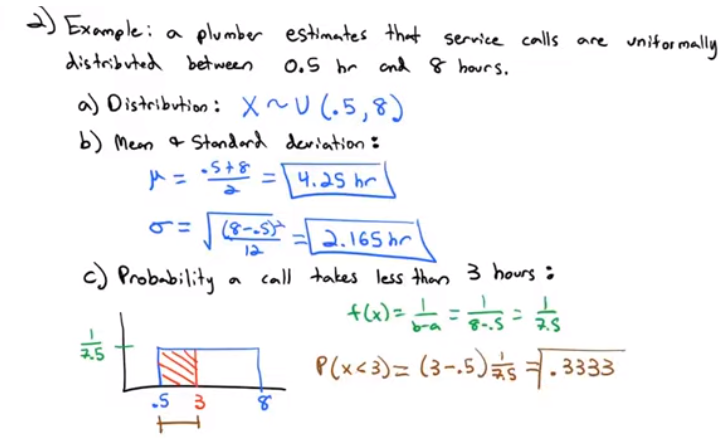 2) Example: a plumber estimates that service calls are uniformly
distributed between 0.5 hr and 8 hours.
a) Distribution: X ~ U (.5, 8)
b) Mean & Standard deviation:
μ = .5+8/2 = 4.25 hr
σ = √((8-.5)²/12) = 2.165 hr
c) Probability a call takes less than 3 hours:
f(x) = 1/b-a = 1/8-.5 = 1/7.5
1/7.5
P(x<3) = (3-.5) 1/7.5 = .3333
.5 3 8